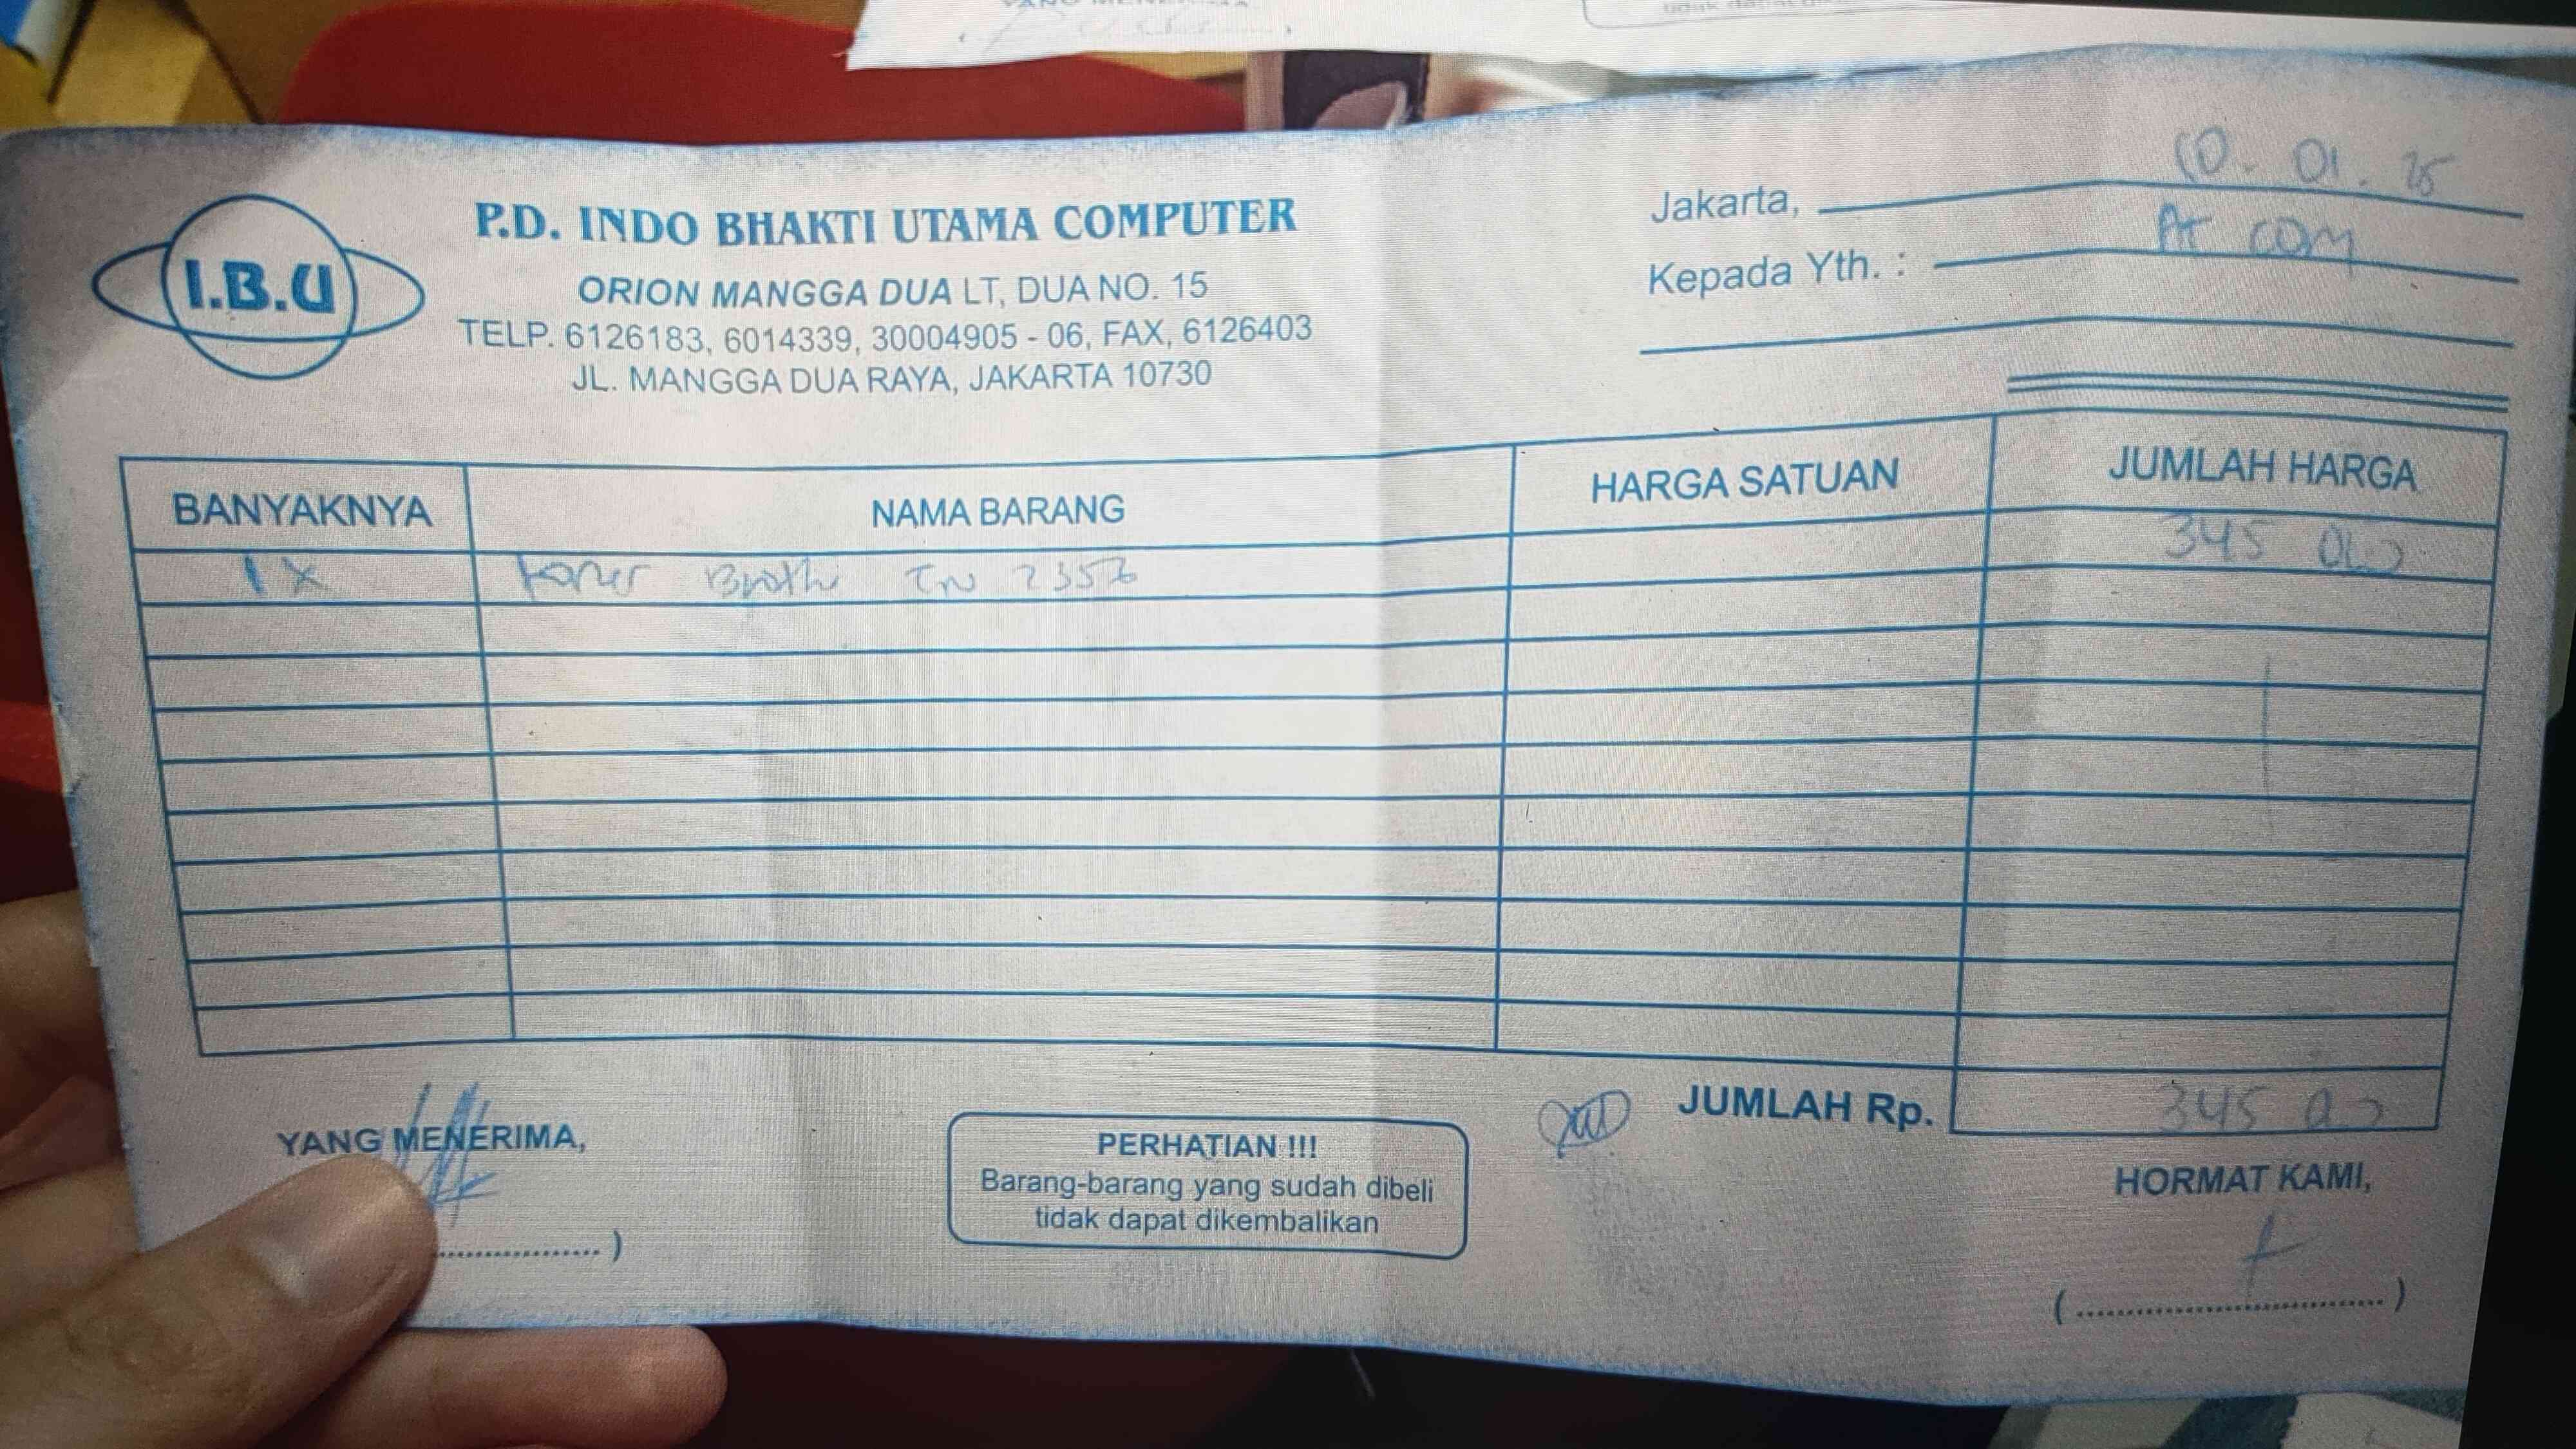 I.B.U
P.D. INDO BHAKTI UTAMA COMPUTER
ORION MANGGA DUA LT, DUA NO. 15
TELP. 6126183, 6014339, 30004905 - 06, FAX, 6126403
JL. MANGGA DUA RAYA, JAKARTA 10730
Jakarta, 10. 01. 25
Kepada Yth. : At com
BANYAKNYA NAMA BARANG HARGA SATUAN JUMLAH HARGA
1 X toner Brother TN 345
JUMLAH Rp. 345
YANG MENERIMA,
PERHATIAN !!!
Barang-barang yang sudah dibeli
tidak dapat dikembalikan
HORMAT KAMI,